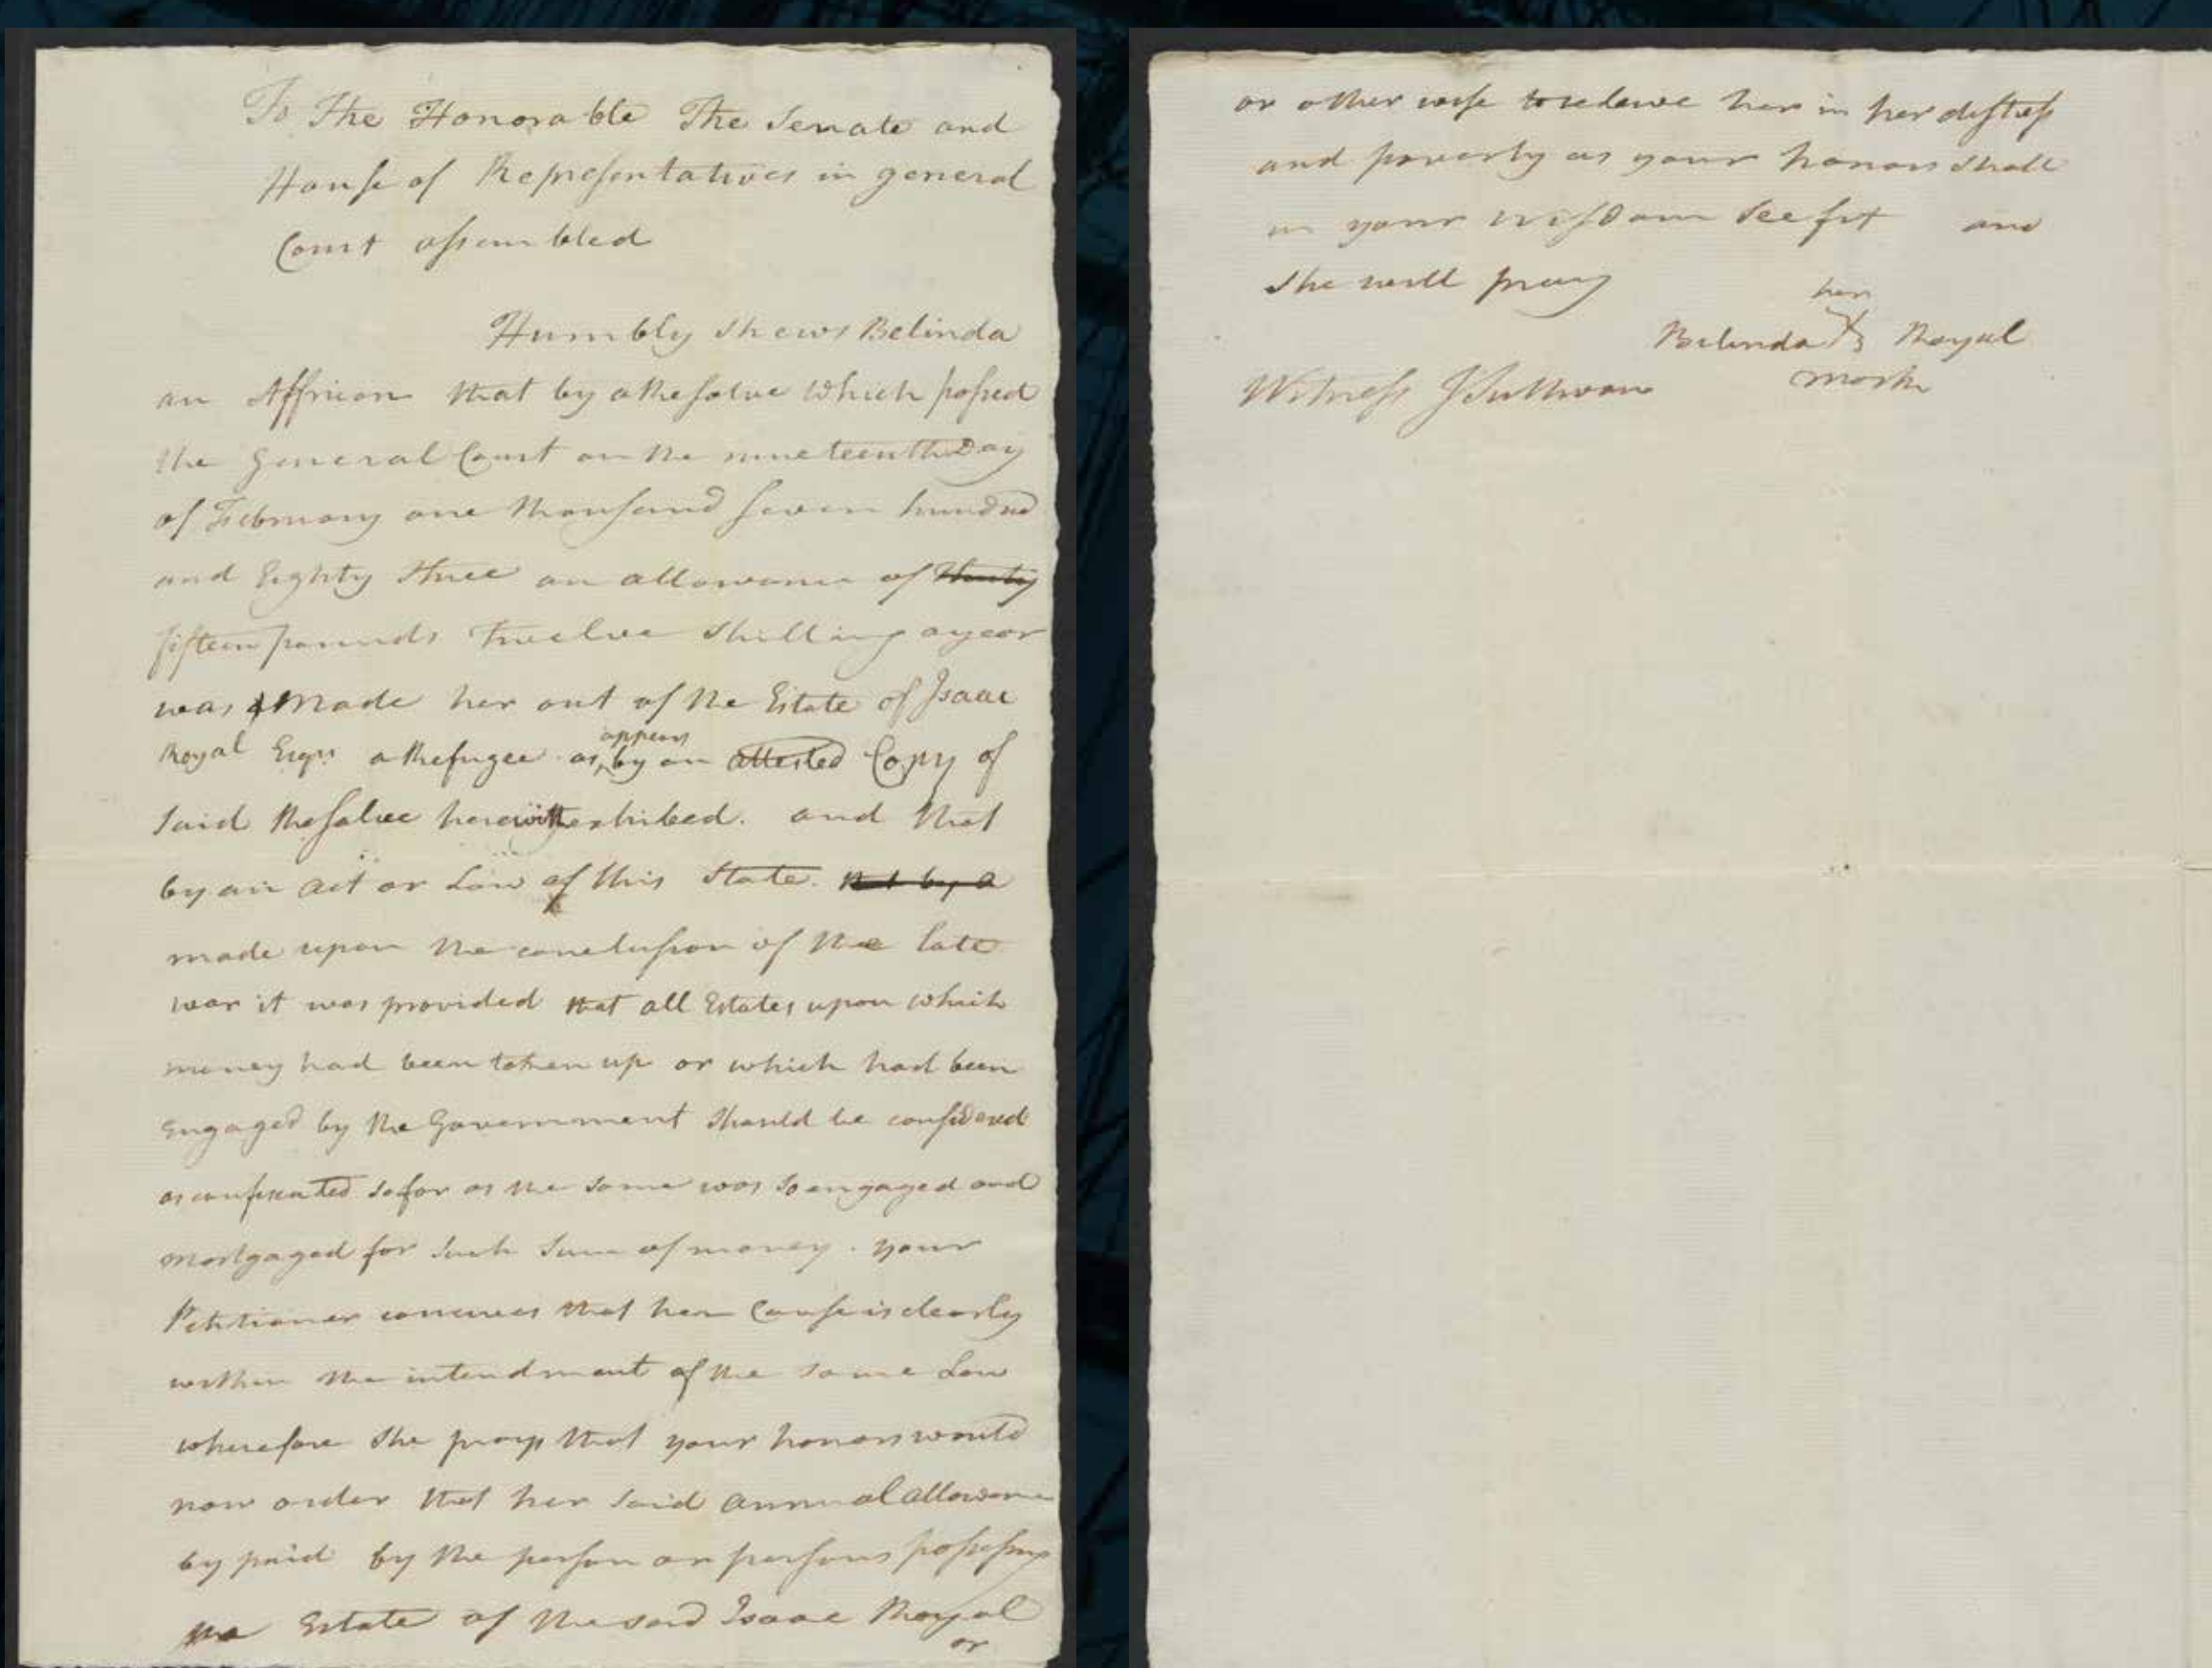 To The Honorable The Senate and
House of Representatives in general
Court assembled
Humbly Shews Belinda
an Affrican that by a Resolve which passed
the General Court on the nineteenth Day
of February one thousand seven hundred
and Eighty three an allowance of
fifteen pounds twelve shilling a year
was made her out of the Estate of Isaac
Royal Esqr a Refugee as appears by an attested Copy of
said Resolve herewith exhibed. and that
by an act or Law of this State. not by a
made upon the conclusion of the late
war it was provided that all Estates upon which
money had been taken up or which had been
engaged by the Government should be considered
as confiscated so far as the same was so engaged and
mortgaged for such sum of money. your
Petitioner conceives that her Cause is clearly
within the intendment of the same Law
wherefore she prays that your honors would
now order that her said annual allowance
by paid by the person or persons possessing
the Estate of the said Isaac Royal
or
or other wise to releive her in her distress
and poverty as your honors shall
in your wisdom see fit and
she will pray
her
Belinda X Royal
mark
Witness J Sullivan